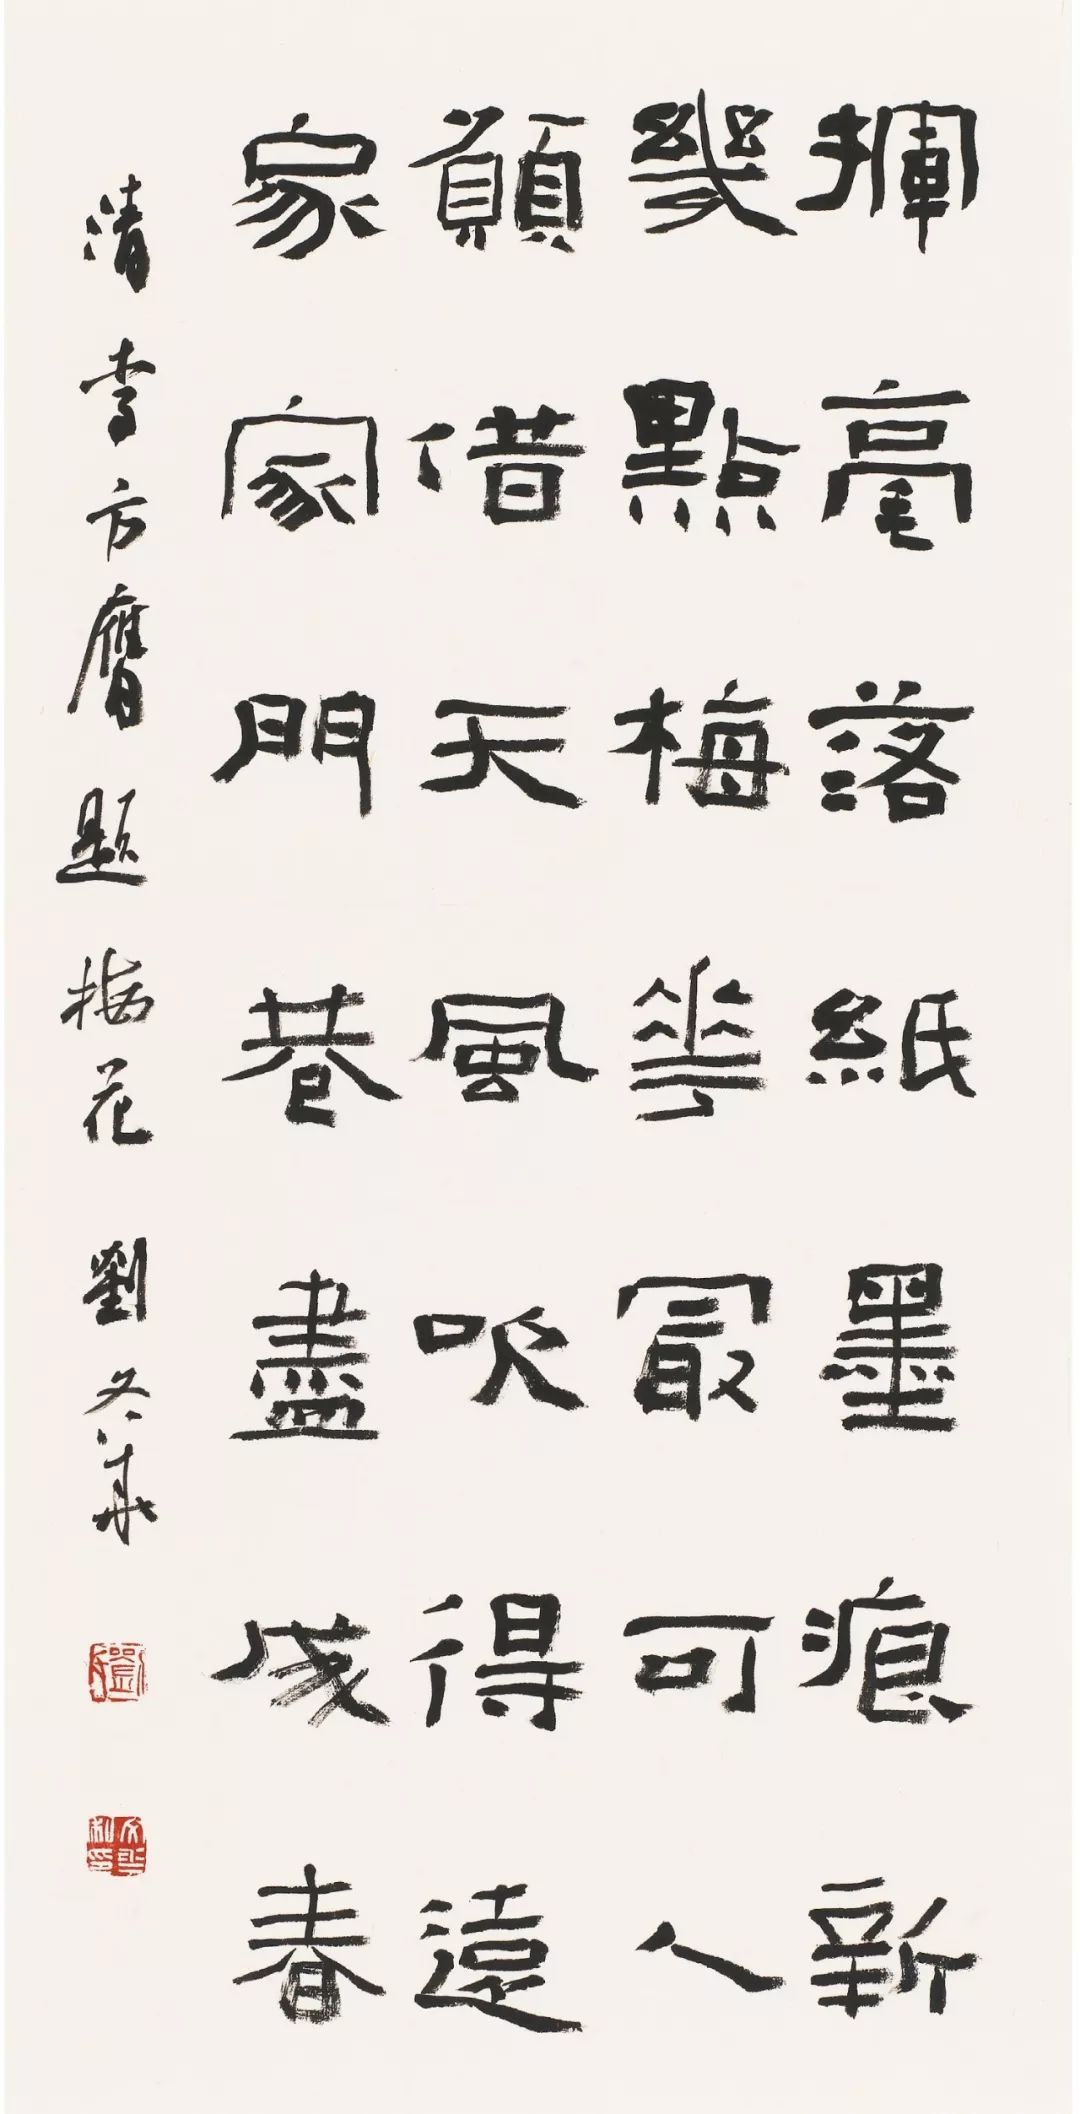 揮毫落紙墨痕新
幾點梅花最可人
願借天風吹得遠
家家門巷盡成春
清李方膺題梅花 劉冬華